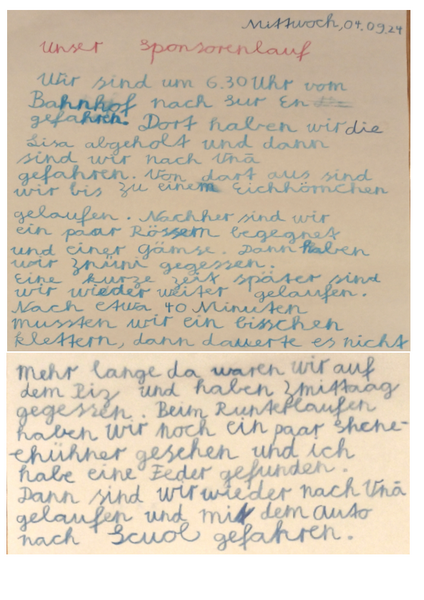 Mittwoch, 04.09.24
Unser Sponsorenlauf
Wir sind um 6.30 Uhr vom
Bahnhof nach Sur En
gefahren. Dort haben wir die
Lisa abgeholt und dann
sind wir nach Vnà
gefahren. Von dort aus sind
wir bis zu einem Eichhörnchen
gelaufen. Nachher sind wir
ein paar Rössern begegnet
und einer Gämse. Dann haben
wir Znüni gegessen.
Eine kurze Zeit später sind
wir wieder weiter gelaufen.
Nach etwa 40 Minuten
mussten wir ein bisschen
klettern, dann dauerte es nicht
mehr lange da waren wir auf
dem Piz und haben Zmittaag
gegessen. Beim Runterlaufen
haben wir noch ein paar Shene-
ehühner gesehen und ich
habe eine Feder gefunden.
Dann sind wir wieder nach Vnà
gelaufen und mit dem Auto
nach Scuol gefahren.